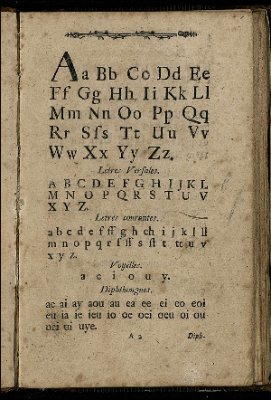 Aa Bb Cc Dd Ee
Ff Gg Hh Ii Kk Ll
Mm Nn Oo Pp Qq
Rr Sſs Tt Uu Vv
Ww Xx Yy Zz.
Letres Verſales.
A B C D E F G H I J K L
M N O P Q R S T U V
X Y Z.
Letres courantes.
a b c d e f ff g h i j k l ll
m n o p q r ſ ſſ s ſt t u v
x y z.
Voyelles.
a e i o u y.
Diphthongues.
ae ai ay aou au ea ee ei eo eoi
eu ia ie ieu io oe oei oeu oi ou
oui ui uye.
A 2 Diph-